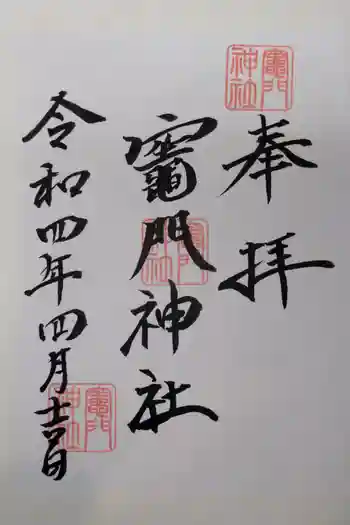 奉拝
竈門神社
令和四年四月吉日
竈門神社
竈門神社
竈門神社